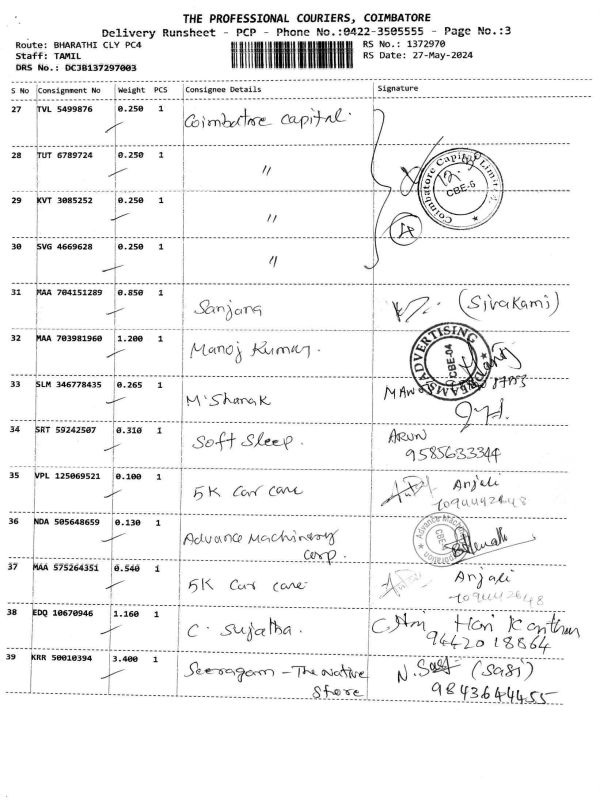 THE PROFESSIONAL COURIERS, COIMBATORE
Delivery Runsheet - PCP - Phone No.:0422-3505555 - Page No.:3
Route: BHARATHI CLY PC4 RS No.: 1372970
Staff: TAMIL RS Date: 27-May-2024
DRS No.: DCJB137297003
S No Consignment No Weight PCS Consignee Details Signature
27 TVL 5499876 0.250 1 Coimbatore Capital.
28 TUT 6789724 0.250 1 "
Coimbatore Capital Limited
CBE-6
29 KVT 3085252 0.250 1 "
4
30 SVG 4669628 0.250 1 "
31 MAA 704151289 0.850 1 Sanjana (Sivakami)
32 MAA 703981960 1.200 1 Manoj Kumar.
DREAMS ADVERTISING
CBE-04
33 SLM 346778435 0.265 1 M'Shanak
34 SRT 59242507 0.310 1 Soft Sleep. ARUN
9585633344
35 VPL 125069521 0.100 1 5K Car care Anjali
36 NDA 505648659 0.130 1 Advance Machinery
Corp.
37 MAA 575264351 0.540 1 5K Car care Anjali
38 EDQ 10670946 1.160 1 C. Sujatha. C.Hari Hari Kanthan
9442018864
39 KRR 50010394 3.400 1 Seeragam - The native
Store
N. Sasi (Sasi)
9843644455